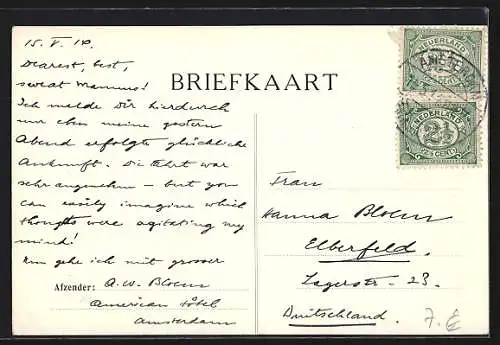 15. V. 10.
Dearest, best,
sweat Mammus!
BRIEFKAART
Ich melde Dir hierdurch
nur eben meine gestern
Abend erfolgte glückliche
Ankunft. Die Fahrt war
sehr angenehm – but you
can easily imagine which
thoughts were agitating my
mind!
Nun gehe ich mit grosser
Afzender: A. W. Bloem
American Hôtel
Amsterdam
NEDERLAND
AMSTERDAM
NEDERLAND
2½
2½ CENT
Frau
Hanna Bloem
Elberfeld
Lagerstr. 23.
Duitschland.